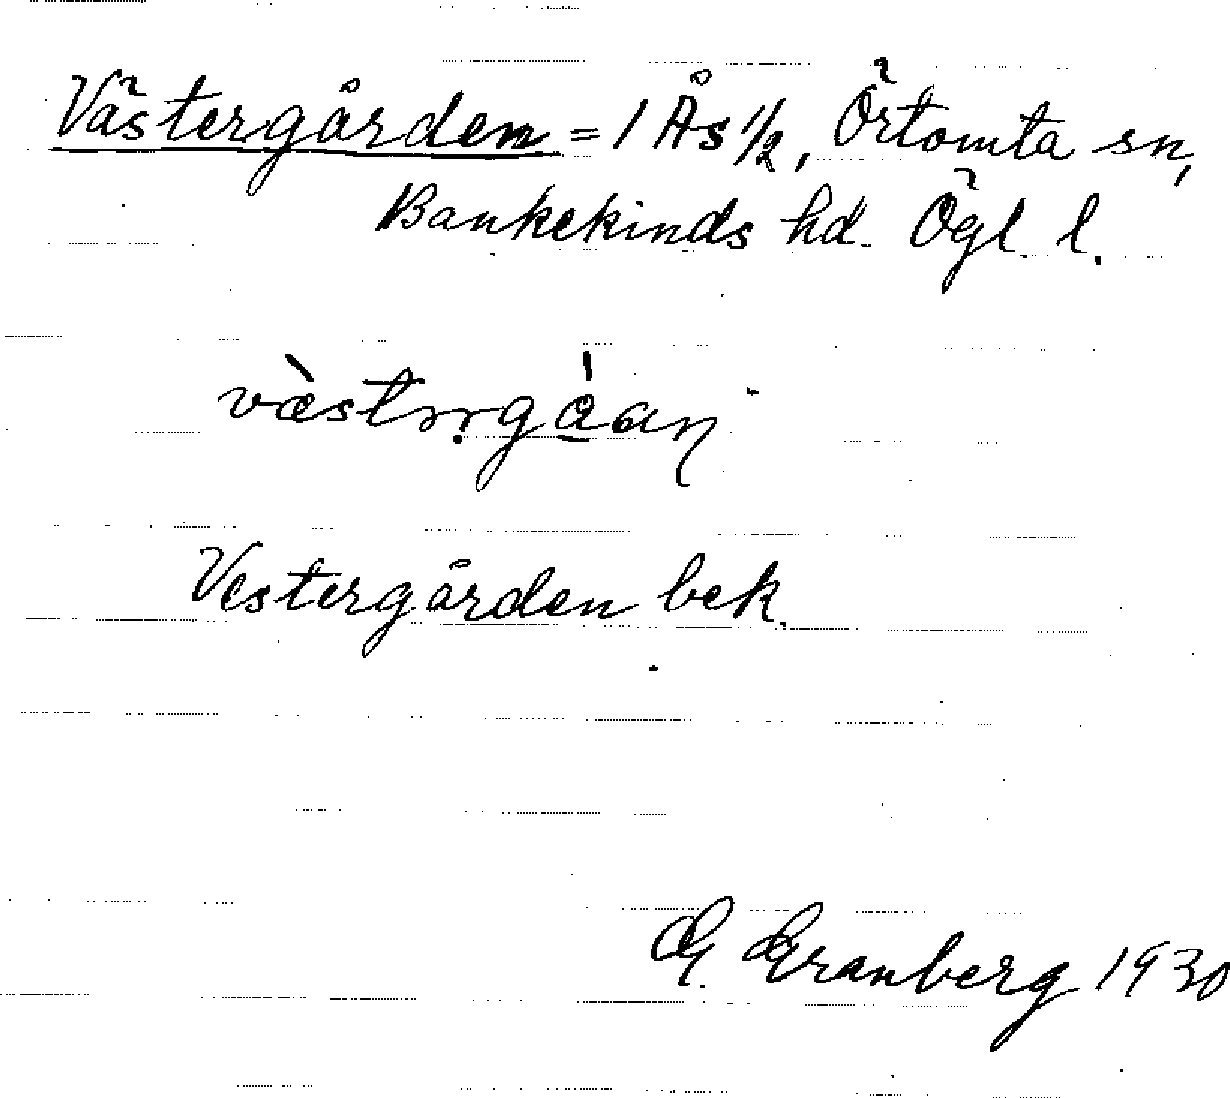 Västergården = 1 Ås 1/2, Örtomta sn,
Bankekinds hd. Ögl. l.
Vestergården bek.
G. Granberg 1930